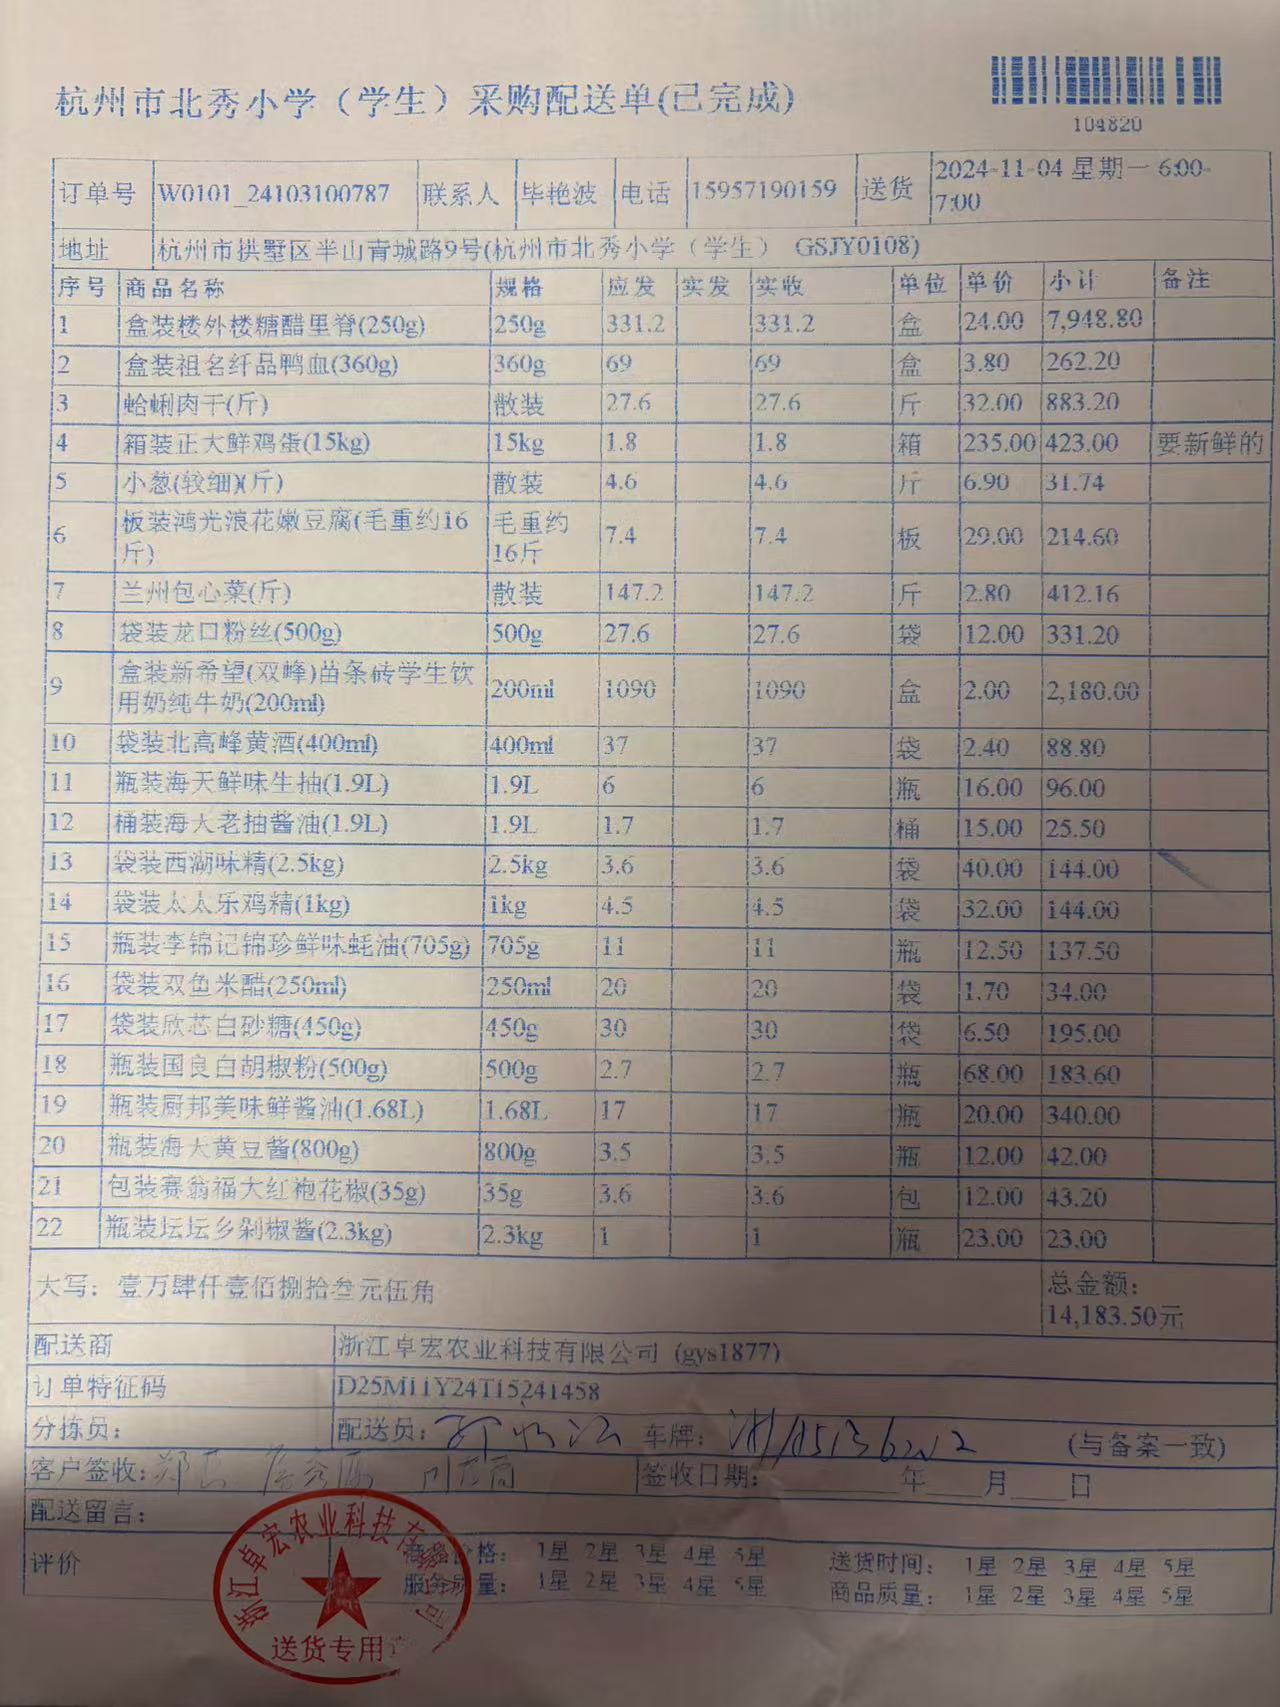 杭州市北秀小学（学生）采购配送单(已完成)
104820
订单号 W0101_24103100787 联系人 毕艳波 电话 15957190159 送货 2024-11-04 星期一 6:00-7:00
地址 杭州市拱墅区半山青城路9号(杭州市北秀小学（学生） GSJY0108)
序号 商品名称 规格 应发 实发 实收 单位 单价 小计 备注
1 盒装楼外楼糖醋里脊(250g) 250g 331.2 331.2 盒 24.00 7,948.80
2 盒装祖名纤品鸭血(360g) 360g 69 69 盒 3.80 262.20
3 蛤蜊肉干(斤) 散装 27.6 27.6 斤 32.00 883.20
4 箱装正大鲜鸡蛋(15kg) 15kg 1.8 1.8 箱 235.00 423.00 要新鲜的
5 小葱(较细)(斤) 散装 4.6 4.6 斤 6.90 31.74
6 板装鸿光浪花嫩豆腐(毛重约16斤) 毛重约16斤 7.4 7.4 板 29.00 214.60
7 兰州包心菜(斤) 散装 147.2 147.2 斤 2.80 412.16
8 袋装龙口粉丝(500g) 500g 27.6 27.6 袋 12.00 331.20
9 盒装新希望(双峰)苗条砖学生饮用奶纯牛奶(200ml) 200ml 1090 1090 盒 2.00 2,180.00
10 袋装北高峰黄酒(400ml) 400ml 37 37 袋 2.40 88.80
11 瓶装海天鲜味生抽(1.9L) 1.9L 6 6 瓶 16.00 96.00
12 桶装海天老抽酱油(1.9L) 1.9L 1.7 1.7 桶 15.00 25.50
13 袋装西湖味精(2.5kg) 2.5kg 3.6 3.6 袋 40.00 144.00
14 袋装太太乐鸡精(1kg) 1kg 4.5 4.5 袋 32.00 144.00
15 瓶装李锦记锦珍鲜味蚝油(705g) 705g 11 11 瓶 12.50 137.50
16 袋装双鱼米醋(250ml) 250ml 20 20 袋 1.70 34.00
17 袋装欣芯白砂糖(450g) 450g 30 30 袋 6.50 195.00
18 瓶装国良白胡椒粉(500g) 500g 2.7 2.7 瓶 68.00 183.60
19 瓶装厨邦美味鲜酱油(1.68L) 1.68L 17 17 瓶 20.00 340.00
20 瓶装海天黄豆酱(800g) 800g 3.5 3.5 瓶 12.00 42.00
21 包装赛翁福大红袍花椒(35g) 35g 3.6 3.6 包 12.00 43.20
22 瓶装坛坛乡剁椒酱(2.3kg) 2.3kg 1 1 瓶 23.00 23.00
大写：壹万肆仟壹佰捌拾叁元伍角 总金额：14,183.50元
配送商 浙江卓宏农业科技有限公司 (gys1877)
订单特征码 D25M11Y24T15241458
分拣员： 配送员： 车牌： (与备案一致)
客户签收： 签收日期：______年____月____日
配送留言：
评价 价格： 1星 2星 3星 4星 5星 送货时间： 1星 2星 3星 4星 5星
服务质量： 1星 2星 3星 4星 5星 商品质量： 1星 2星 3星 4星 5星
浙江卓宏农业科技有 司
送货专用